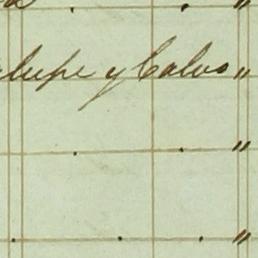 "
alupe y Calvo "
"
"